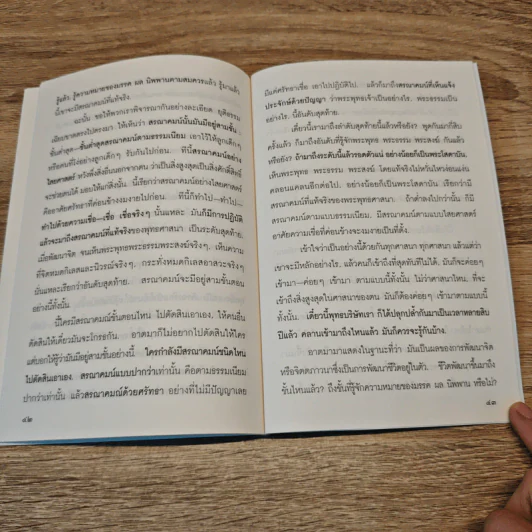 รู้แล้ว. รู้ความหมายของมรรค ผล นิพพานตามสมควรแล้ว รู้มาแล้ว
นี้เขาจะมีสรณาคมน์ที่แท้จริง
ฉะนั้น ขอให้พวกเราพิจารณากันอย่างละเอียด ยุติธรรม
เฉียบขาดตรงไปตรงมา ให้เห็นว่า สรณาคมน์นั้นมันมีอยู่สามชั้น.
ชั้นต่ำสุด—ชั้นต่ำสุดสรณาคมน์ตามธรรมเนียม เอาไว้ให้ลูกเด็กๆ
หรือคนที่โง่อย่างลูกเด็กๆ รับกันไปก่อน. ทีนี้สรณาคมน์อย่าง
ไสยศาสตร์ หวังพึ่งสิ่งอื่นนอกจากตน ว่าเป็นสิ่งสูงสุดเป็นสิ่งศักดิ์สิทธิ์
จะช่วยตนได้ มอบให้แก่สิ่งนั้น. นี้เรียกว่าสรณาคมน์อย่างไสยศาสตร์
คืออาศัยศรัทธาที่ค่อนข้างงมงายไปก่อน. ทีนี้ก็ทำไป—ทำไป—
ทำไปด้วยความเชื่อ—เชื่อ เชื่อจริงๆ นั้นแหละ มันก็มีการปฏิบัติ
แล้วจะมาถึงสรณาคมน์ที่แท้จริงของพุทธศาสนา เป็นระดับสุดท้าย.
เมื่อพัฒนาจิต จนเห็นพระพุทธพระธรรมพระสงฆ์จริงๆ, เห็นความ
ที่จิตหมดกิเลสและนิวรณ์จริงๆ. กระทั่งหมดกิเลสอาสวะจริงๆ
นั่นแหละเรียกว่าอันดับสุดท้าย. สรณาคมน์จะมีอยู่สามขั้นตอน
อย่างนี้ทั้งนั้น
นี้ใครมีสรณาคมน์ขั้นตอนไหน ไปตัดสินเอาเอง, ให้คนอื่น
ตัดสินให้เดี๋ยวมันจะโกรธกัน. อาตมาก็ไม่อยากไปตัดสินให้ใคร
แต่บอกให้รู้ว่ามันมีอยู่สามชั้นอย่างนี้. ใครกำลังมีสรณาคมน์ชนิดไหน
ไปตัดสินเอาเอง. สรณาคมน์แบบปากว่าเท่านั้น คือตามธรรมเนียม
ปากว่าเท่านั้น แล้วสรณาคมน์ด้วยศรัทธา อย่างที่ไม่มีปัญญาเลย
๔๒
มีแต่ศรัทธาเชื่อ เอาไปปฏิบัติไป. แล้วก็มาถึงสรณาคมน์ที่เห็นแจ้ง
ประจักษ์ด้วยปัญญา ว่าพระพุทธเจ้าเป็นอย่างไร. พระธรรมเป็น
อย่างไร. นี้อันดับสุดท้าย.
เดี๋ยวนี้เรามาถึงลำดับสุดท้ายนี้แล้วหรือยัง? พูดกันมากี่สิบ
ครั้งแล้ว ก็มาถึงอันดับที่รู้จักพระพุทธ พระธรรม พระสงฆ์ กันแล้ว
หรือยัง? ถ้ามาถึงระดับนี้แล้วรอดตัวแน่ อย่างน้อยก็เป็นพระโสดาบัน.
เห็นพระพุทธ พระธรรม พระสงฆ์ โดยแท้จริงไม่หวั่นไหวง่อนแง่น
คลอนแคลนอีกต่อไป. อย่างน้อยก็เป็นพระโสดาบัน เรียกว่ามี
สรณาคมน์ที่แท้จริงของพระพุทธศาสนา. ถ้าต่ำลงไปกว่านั้น ก็มี
สรณาคมน์ตามแบบธรรมเนียม, มีสรณาคมน์ตามแบบไสยศาสตร์
อาศัยความเชื่อที่ค่อนข้างจะงมงายเป็นที่ตั้ง.
เข้าใจว่าเป็นอย่างนี้ด้วยกันทุกศาสนา ทุกศาสนา แล้วแต่ว่า
เขาจะมีหลักอย่างไร. แล้วคนก็เข้าถึงที่สุดทันทีไม่ได้. มันก็จะค่อยๆ
เข้ามา—ค่อยๆ เข้ามา. ตามแบบนี้ทั้งนั้น ไม่ว่าศาสนาไหน. ที่จะ
เข้าถึงสิ่งสูงสุดในศาสนาของตน มันก็ต้องค่อยๆ เข้ามาตามแบบนี้
ทั้งนั้น. เดี๋ยวนี้พุทธบริษัทเรา ก็ได้ปลุกปล้ำกันมาเป็นเวลาหลายสิบ
ปีแล้ว คลานเข้ามาถึงไหนแล้ว มันก็ควรจะรู้กันบ้าง.
อาตมามาแสดงในฐานะที่ว่า มันเป็นผลของการพัฒนาจิต
หรือจิตตภาวนาซึ่งเป็นการพัฒนาชีวิตอยู่ในตัว. ชีวิตพัฒนาขึ้นมาถึง
ชั้นไหนแล้ว? ถึงชั้นที่รู้จักความหมายของมรรค ผล นิพพาน หรือไม่?
๔๓